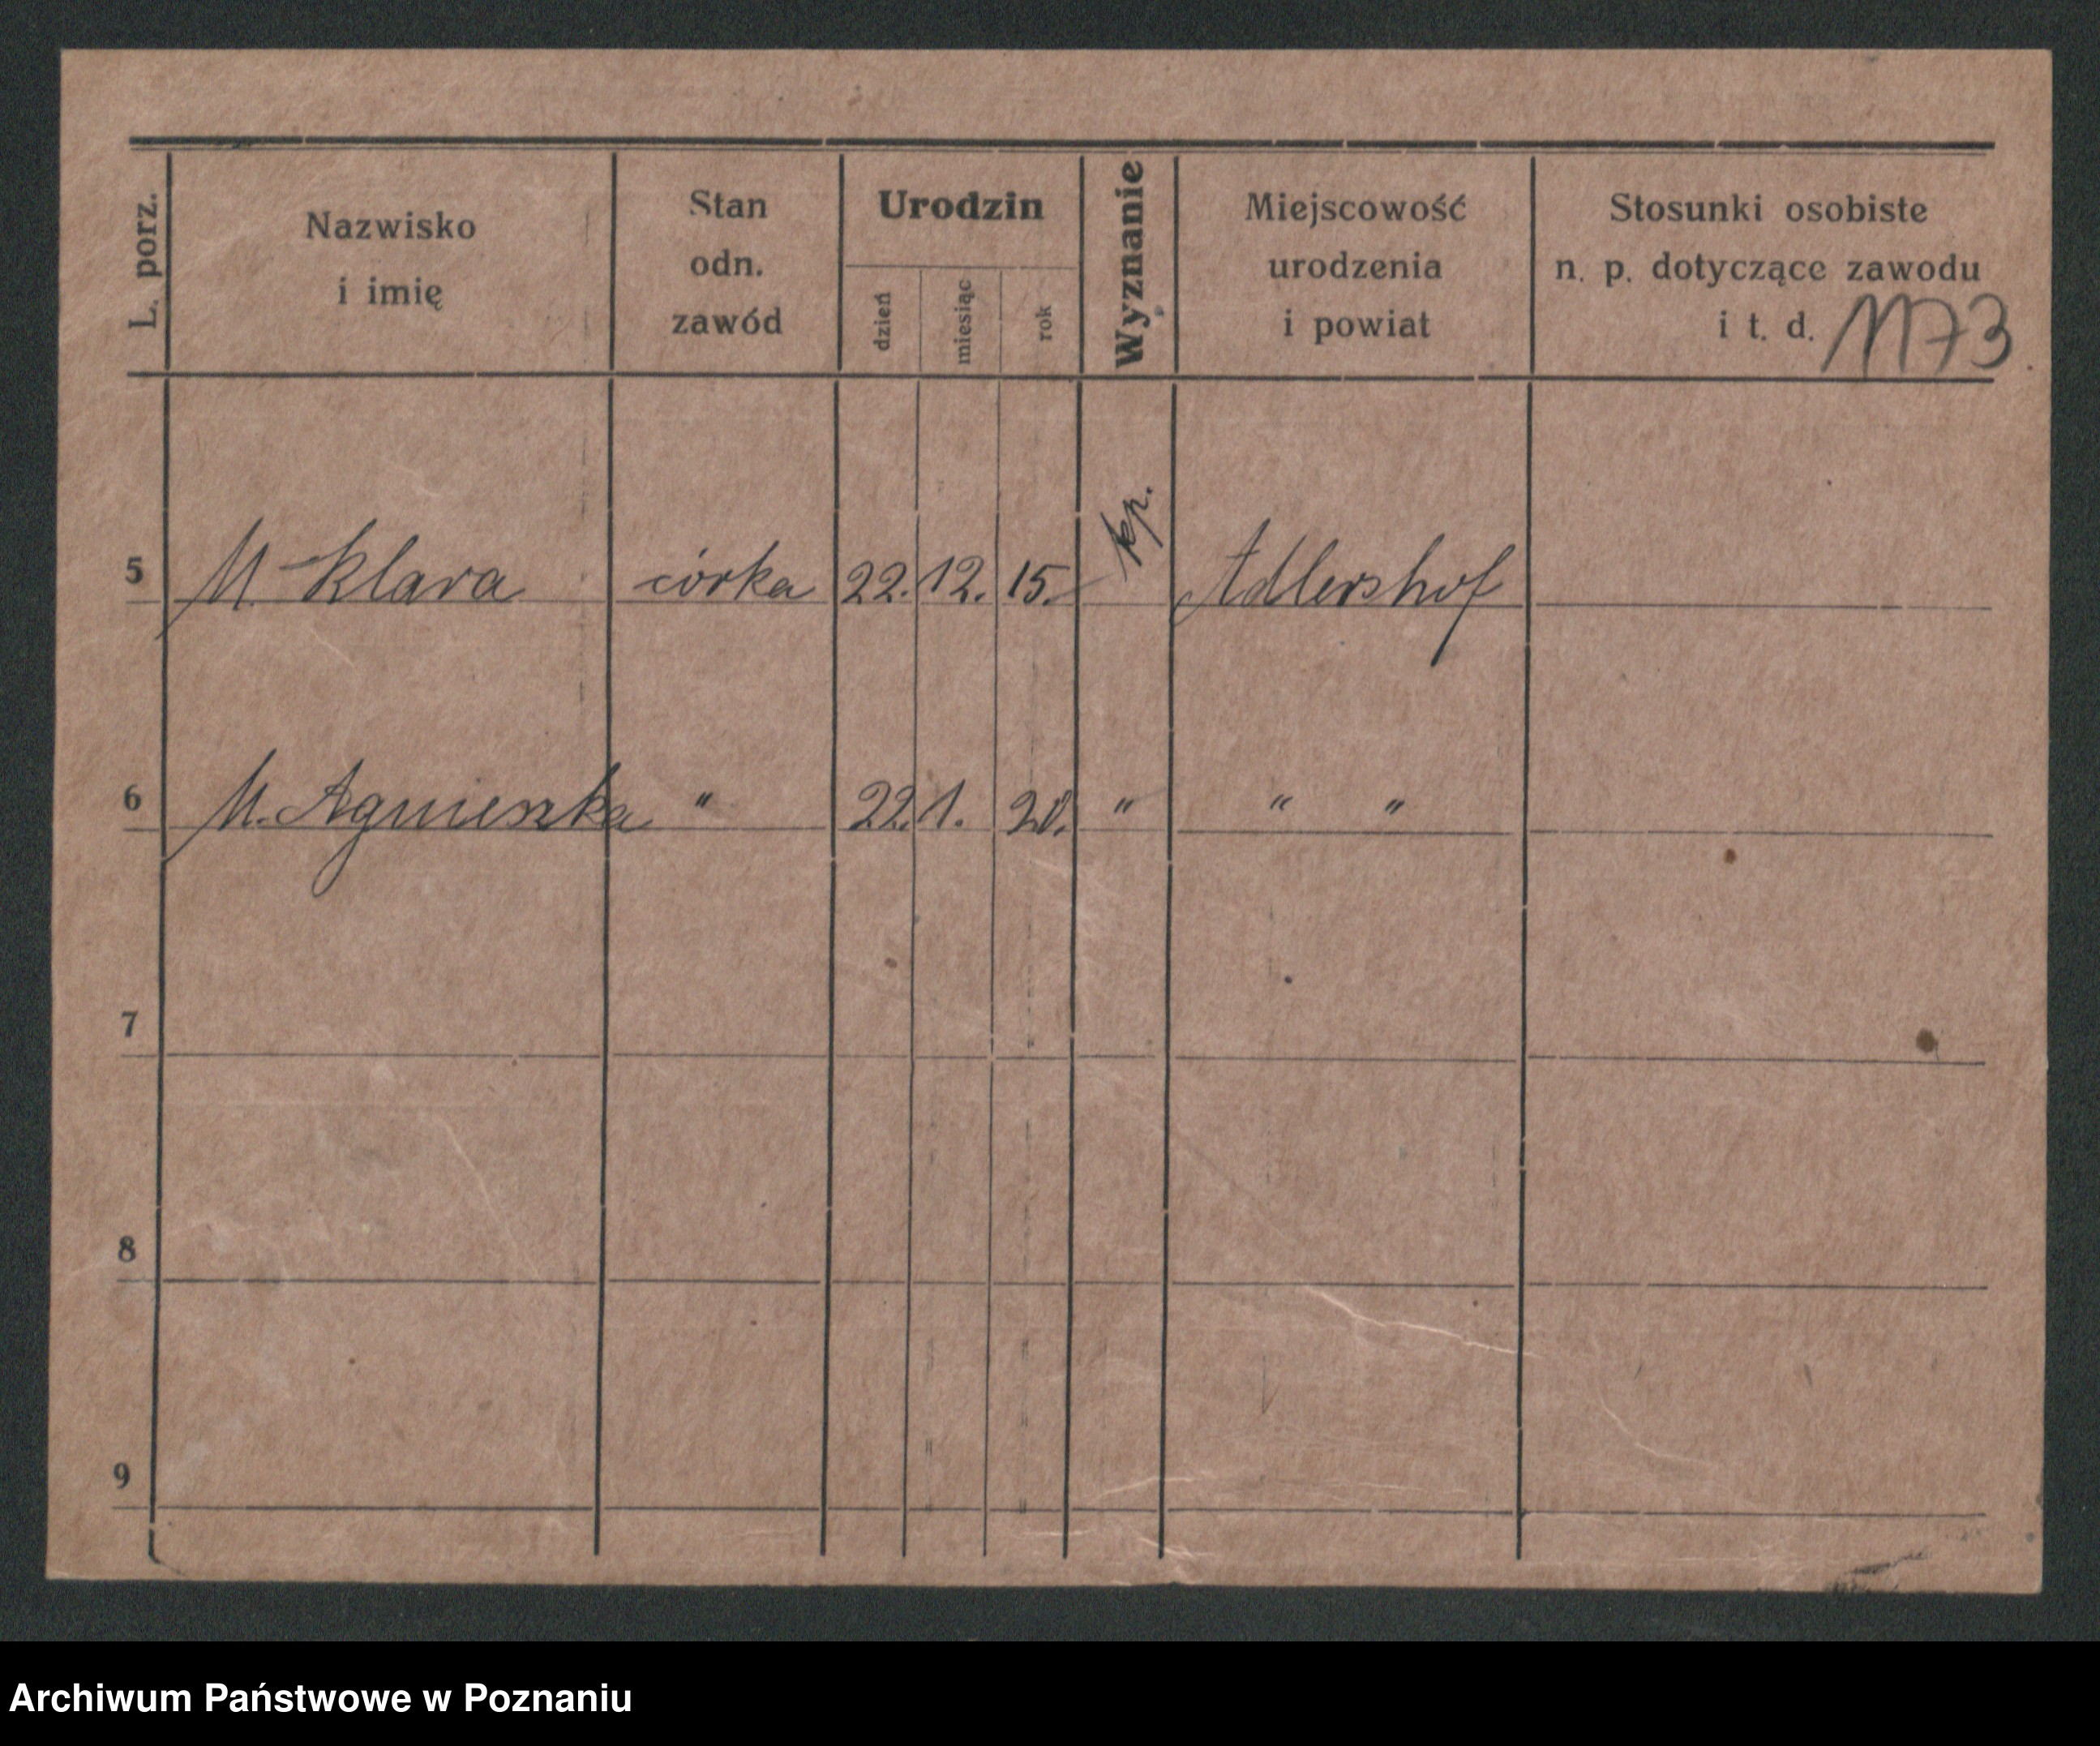 L. porz.
Nazwisko
i imię
Stan
odn.
zawód
Urodzin
dzień
miesiąc
rok
Wyznanie
Miejscowość
urodzenia
i powiat
Stosunki osobiste
n. p. dotyczące zawodu
i t. d.
1173
5 M. Klara córka 22. 12. 15. kp. Adlershof
6 M. Agnieszka " 22. 1. 20. " " "
7
8
9
Archiwum Państwowe w Poznaniu